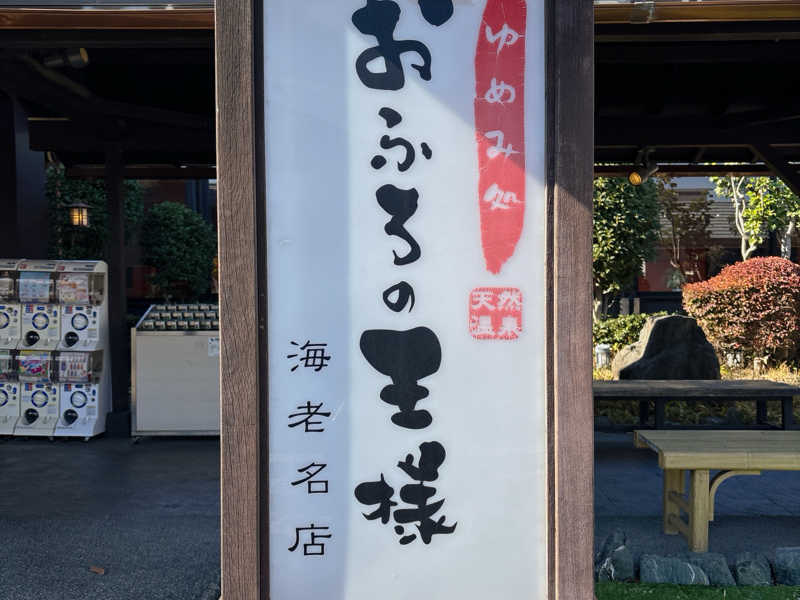 ゆめみ処
おふろの王様
天然
温泉
海老名店